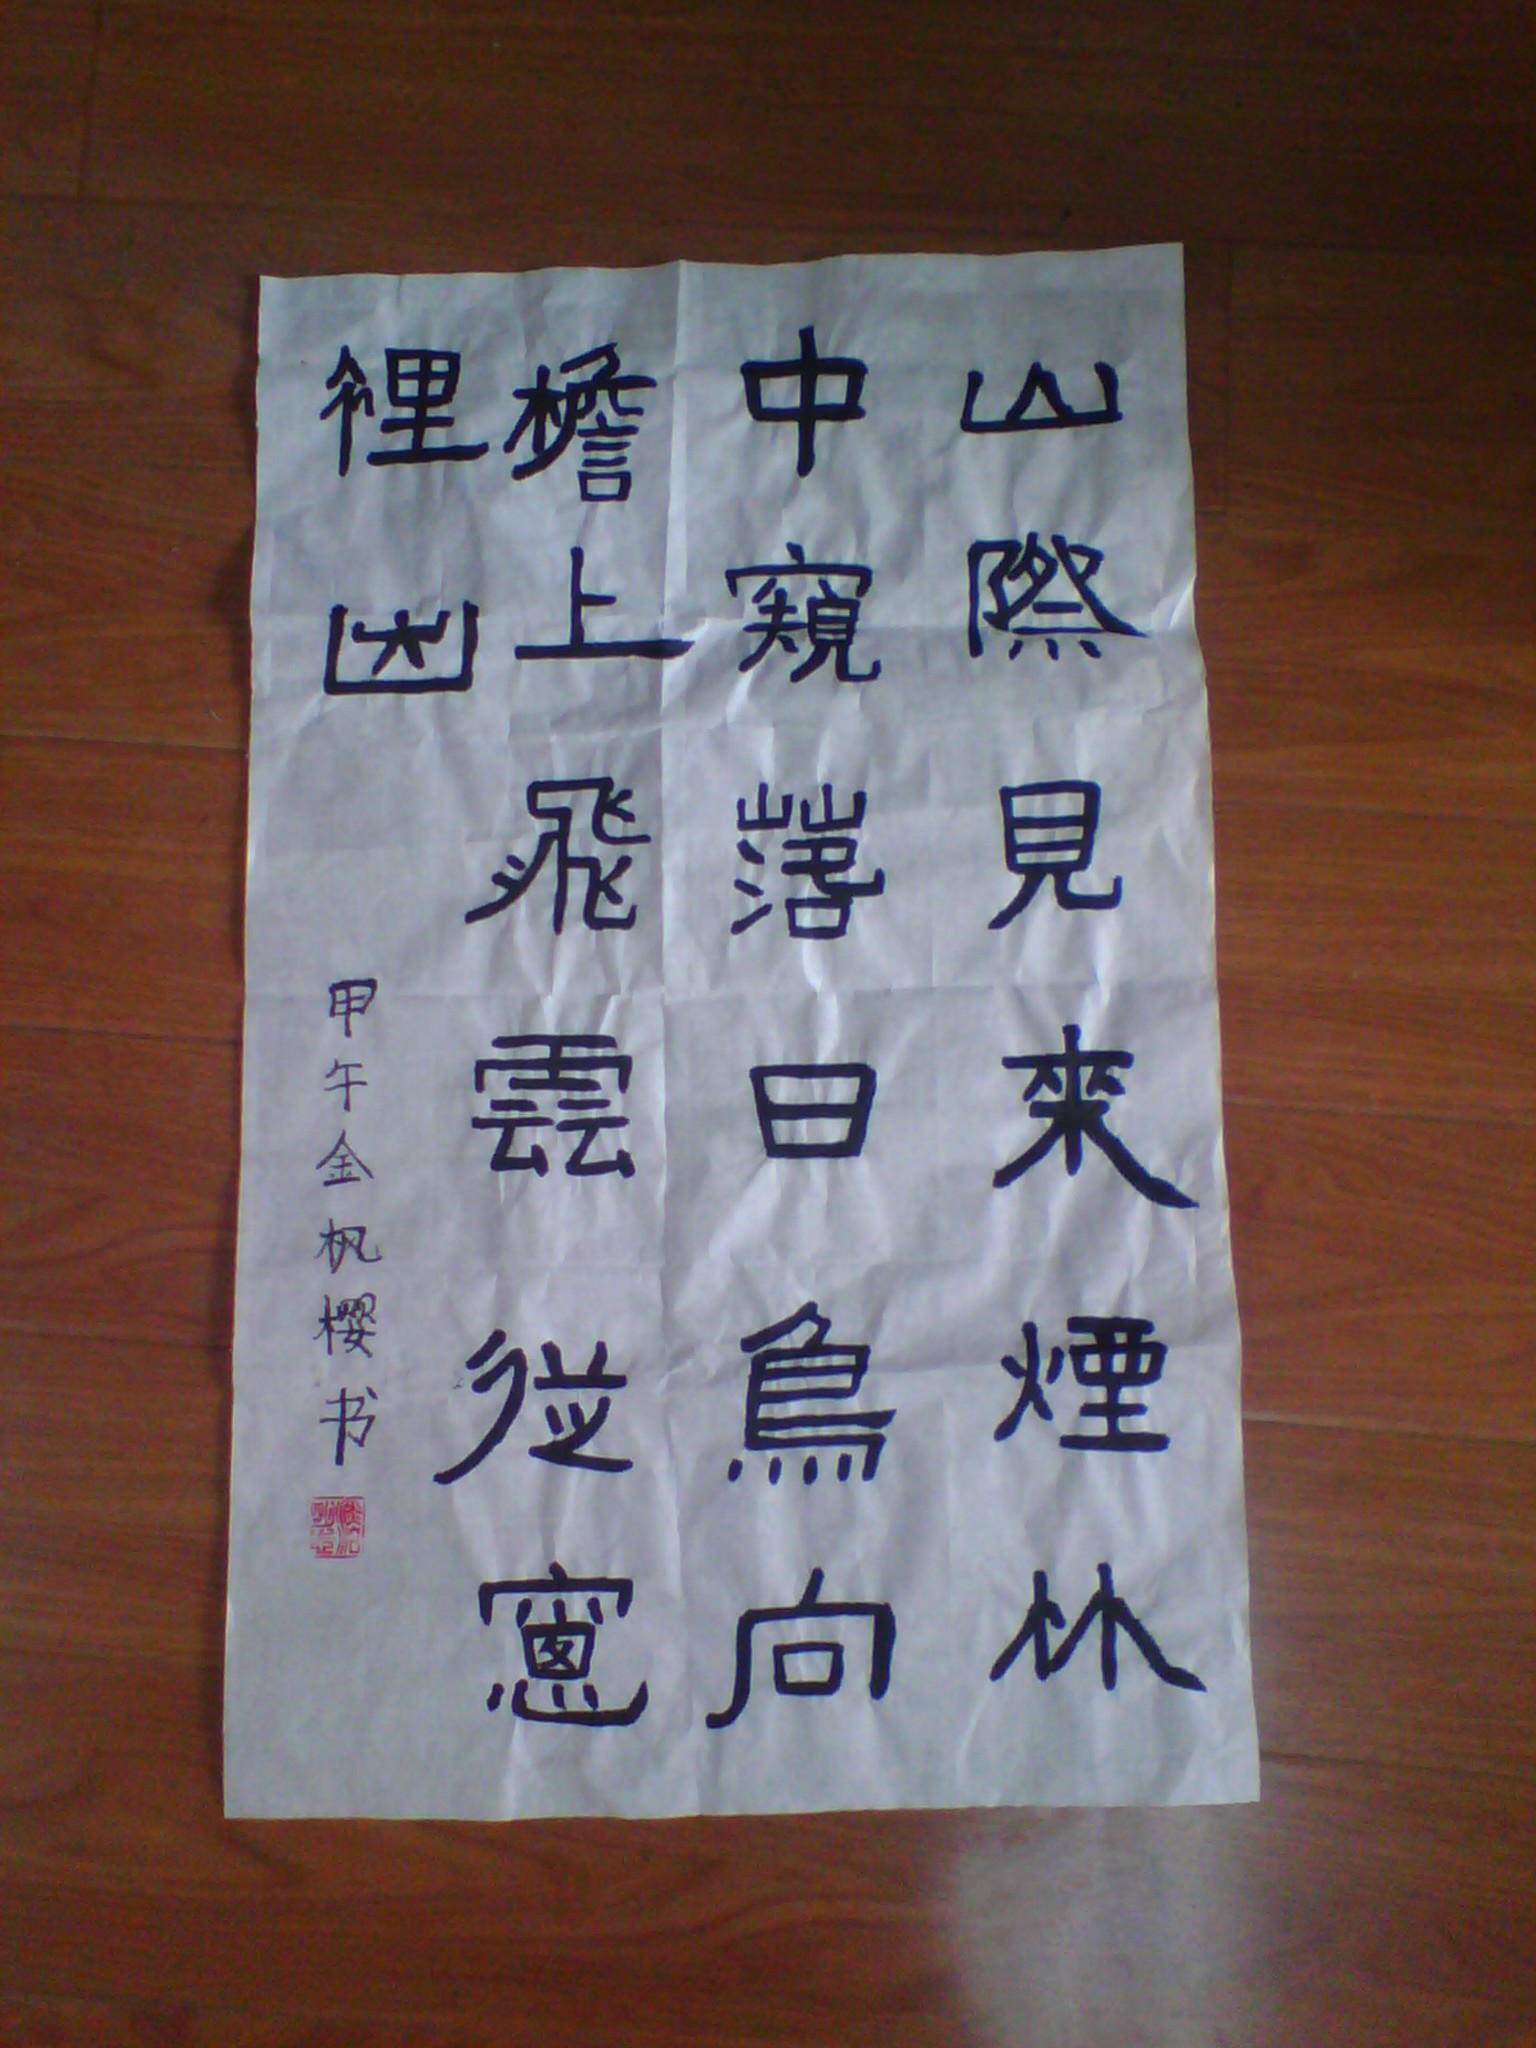 山際見來煙竹
中窺落日鳥向
檐上飛雲從窻
裡出
甲午金枫樱书